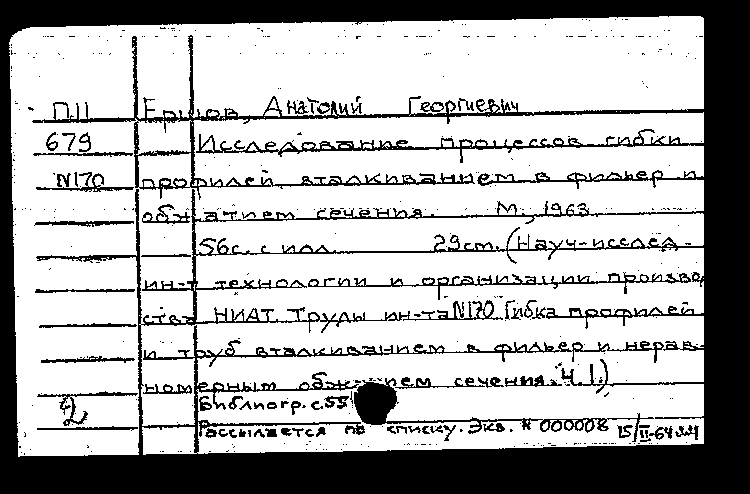 П11 Ершов, Анатолий Георгиевич
679 Исследование процессов гибки
N170 профилей вталкиванием в фильер и
обжатием сечения. М., 1963
56с. с илл. 29см. (Науч-исслед-
ин-т технологии и организации произво
ства НИАТ Труды ин-та N170 Гибка профилей
и труб вталкиванием в фильер и нерав-
номерным обжатием сечения. Ч. 1.)
2 Библиогр. с.55
Рассылается по списку. Экз. № 000008 15/II-64